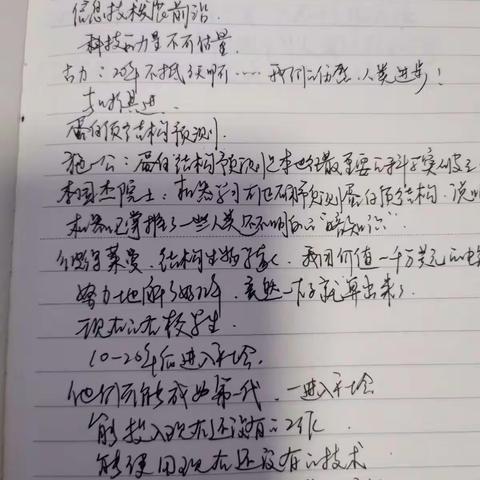 信息技术发展前沿
科技的力量不可估量.
古力：20年不抵3天啊…… 我们的伤悲.人类进步！
与时俱进.
蛋白质结构预测.
施一公：蛋白结构预测是本世纪最重要的科学突破之
李国杰院士：机器学习可以有效预测蛋白质结构，说明
机器已掌握了一些人类还不明白的“暗知识”.
结构生物学家. 我用价值一千万美元的电
努力地解了好几年，竟然一下子就算出来了.
现在的在校学生.
10-20年后进入社会.
他们可能成为第一代. 一进入社会
能投入现在还没有的工作
能使用现在还没有的技术